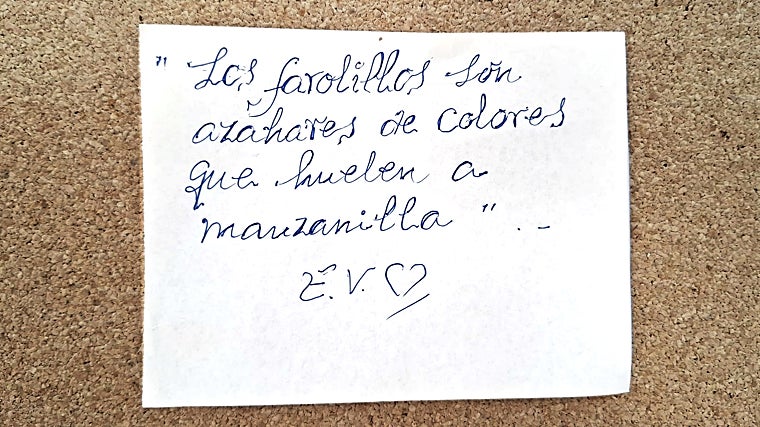 " Los farolillos són
azahares de colores
que huelen a
manzanilla " . -
E. V. ♡